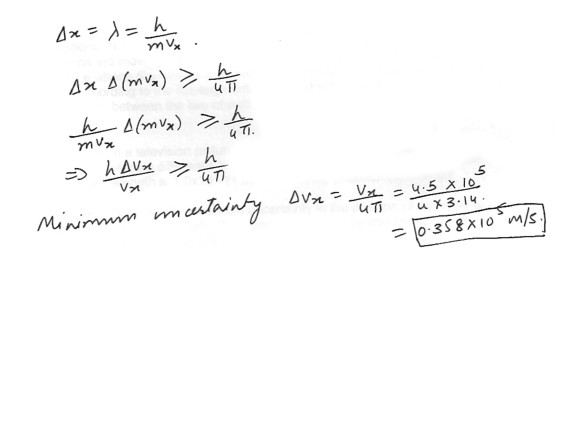 Δx = λ = h/mvx .
Δx Δ(mvx) ⩾ h/4π
h/mvx Δ(mvx) ⩾ h/4π.
⇒ hΔvx/vx ⩾ h/4π
Minimum uncertainty Δvx = vx/4π = 4.5 × 10^5/4×3.14.
= 0.358×10^5 m/s.